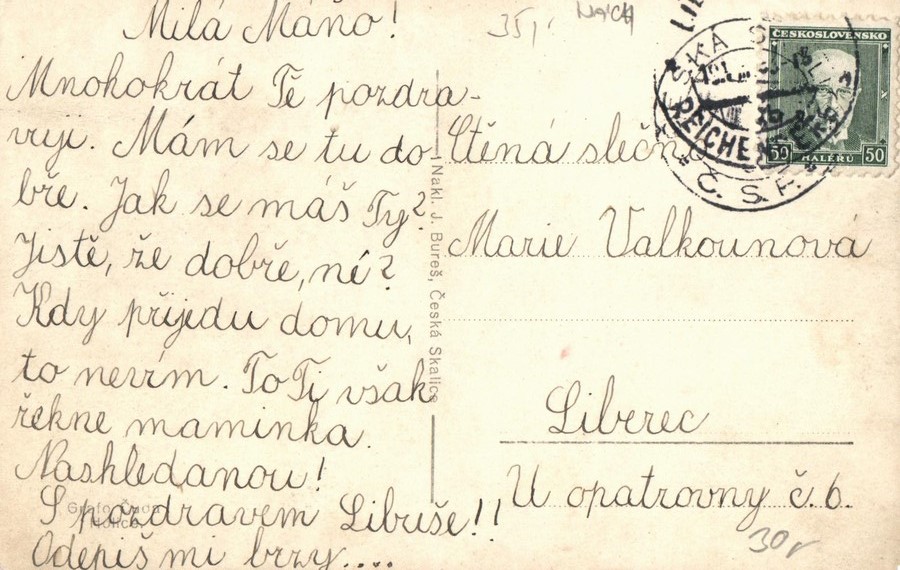 Milá Máňo!
Mnohokrát Tě pozdra-
vuji. Mám se tu do
bře. Jak se máš Ty?
Jistě, že dobře, ně?
Kdy přijedu domu,
to nevím. To Ti však
řekne maminka.
Nashledanou!
S pozdravem Libuše!!
Odepiš mi brzy....
Nakl. J. Bureš, Česká Skalice
Grafo Čuda
Holice
35,-
NÁCH
ČESKOSLOVENSKO
50 HALÉŘŮ 50
REICHENBERG
Č. S. P.
Ctěná slečna
Marie Valkounová
Liberec
U opatrovny č. 6.
30,-